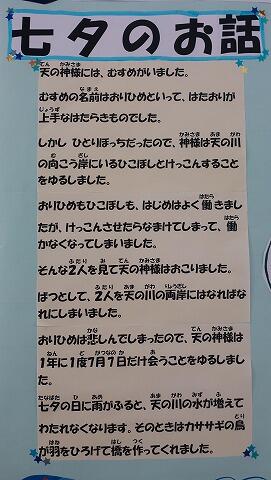 七夕のお話
天の神様には、むすめがいました。
むすめの名前はおりひめといって、はたおりが
上手なはたらきものでした。
しかし ひとりぼっちだったので、神様は天の川
の向こう岸にいるひこぼしとけっこんすること
をゆるしました。
おりひめもひこぼしも、はじめはよく働きまし
たが、けっこんさせたらなまけてしまって、働
かなくなってしまいました。
そんな2人を見て天の神様はおこりました。
ばつとして、2人を天の川の両岸にはなればな
れにしまいました。
おりひめは悲しんでしまったので、天の神様は
1年に1度7月7日だけ会うことをゆるしまし
た。
七夕の日に雨がふると、天の川の水が増えて
わたれなくなります。そのときはカササギの鳥
が羽をひろげて橋を作ってくれました。